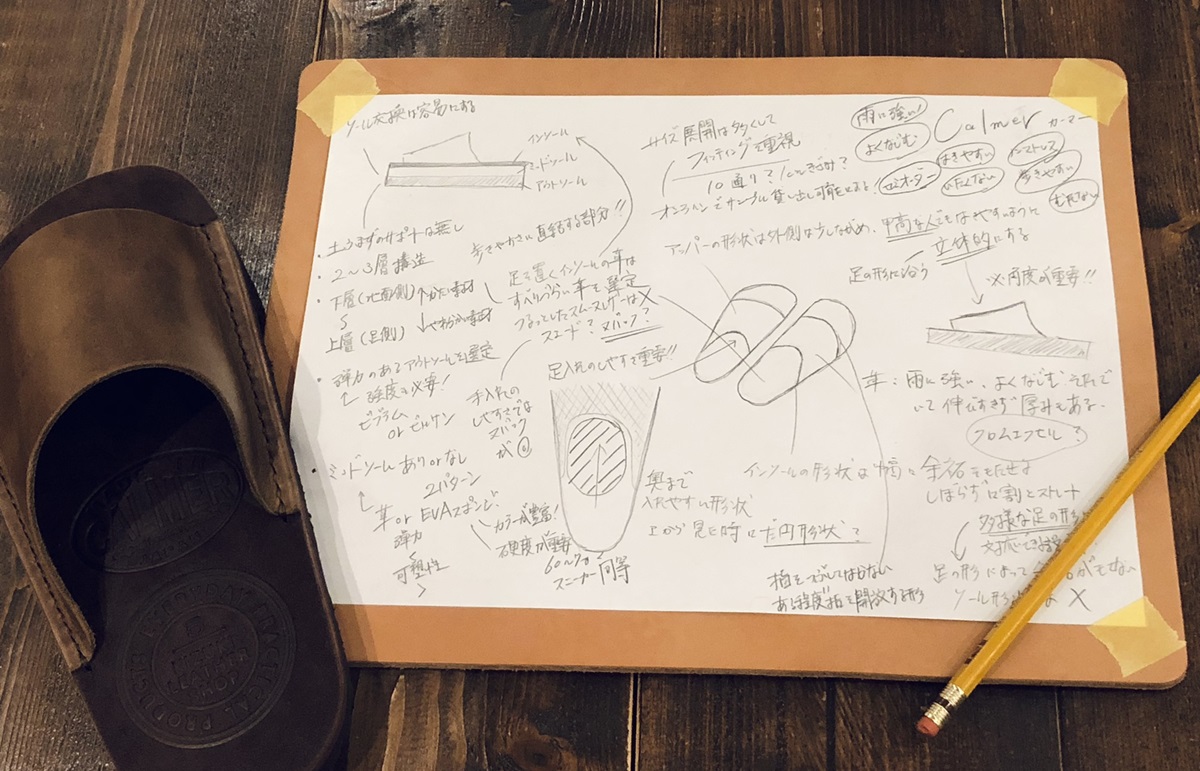 ソール交換は容易にする
インソール
ミッドソール
アウトソール
・土ふまずのサポートは無し
・2〜3層構造
・下層(地面側)↑かため
上層(足側)↓やわらかめ
・弾力のあるアウトソールを選定
↑強度も必要!
ビブラム
or ビルケン
・ミッドソールありorなし
2パターン
革 or EVAスポンジ
弾力
可塑性
カラーが豊富!
硬度が重要
スニーカー同等
歩きやすさに直結する部分!!
足を置くインソールの革は
すべりづらい革を選定
つるっとしたスムースレザーは×
スエード? ヌバック?
手入れの
しやすさでは
ヌバック
が◎
足入れのしやすさ重要!!
奥まで
入れやすい形状
上から見た時にだ円形状?
サイズ展開は多くして
フィッティングを重視
オンラインでサンプル貸し出し可能にする
雨に強い!
Calmer カーマー
よくなじむ
はきやすい
ストレスフリー
セミオーダー
いたくない
歩きやすい
むれない
アッパーの形状は外側は少しながめ、甲高な人でもはきやすいように
立体的にする
足の形に沿う
※角度が重要!!
革:雨に強い、よくなじむ、それで
いて伸びすぎず厚みもある。
クロムエクセル?
インソールの形状は幅に余裕をもたせる
しぼらずに割とストレート
多様な足の形に
対応できる
足の形によって
ソール形状は ×
指をつぶしてはかない
ある程度指を開放する形